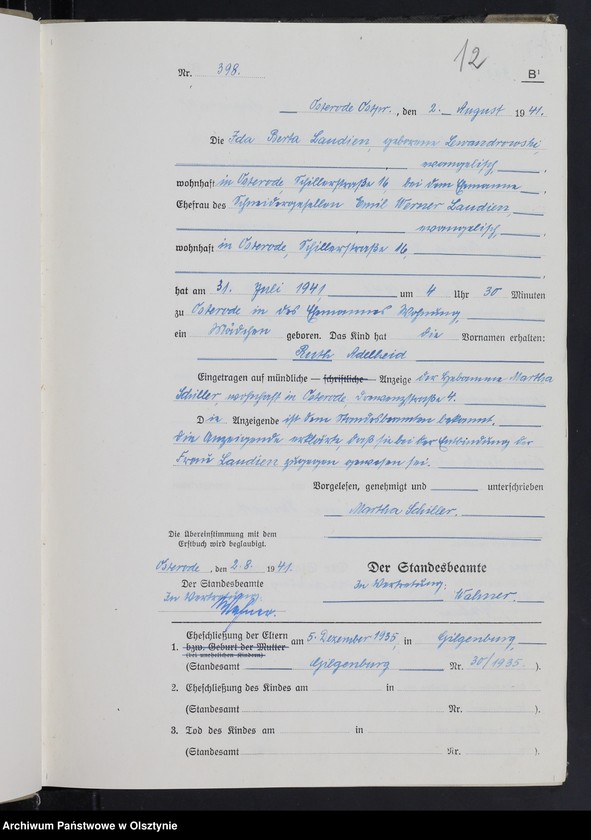 12
Nr. 398.
B¹
Osterode Ostpr., den 2. August 1941.
Die Ida Berta Laudien, geborene Lewandrowski,
evangelisch,
wohnhaft in Osterode, Schillerstraße 16, bei dem Ehemanne
Ehefrau des Schneidergesellen Emil Werner Laudien,
evangelisch,
wohnhaft in Osterode, Schillerstraße 16,
hat am 31. Juli 1941 um 4 Uhr 30 Minuten
zu Osterode in des Ehemannes Wohnung,
ein Mädchen geboren. Das Kind hat die Vornamen erhalten:
Ruth Adelheid
Eingetragen auf mündliche — schriftliche — Anzeige der Hebamme Martha
Schiller, wohnhaft in Osterode Drewenzstraße 4.
Die Anzeigende ist dem Standesbeamten bekannt.
Die Anzeigende erklärte, daß sie bei der Entbindung der
Frau Laudien zugegen gewesen sei.
Vorgelesen, genehmigt und unterschrieben
Martha Schiller.
Die Übereinstimmung mit dem
Erstbuch wird beglaubigt.
Osterode, den 2.8. 1941.
Der Standesbeamte
In Vertretung:
Der Standesbeamte
In Vertretung:
Eheschließung der Eltern am 5. Dezember 1935, in Gilgenburg,
1. bzw. Geburt der Mutter
(bei unehelichen Kindern)
(Standesamt Gilgenburg Nr. 30/1935. ).
2. Eheschließung des Kindes am in
(Standesamt Nr. ).
3. Tod des Kindes am in
(Standesamt Nr. ).
Archiwum Państwowe w Olsztynie